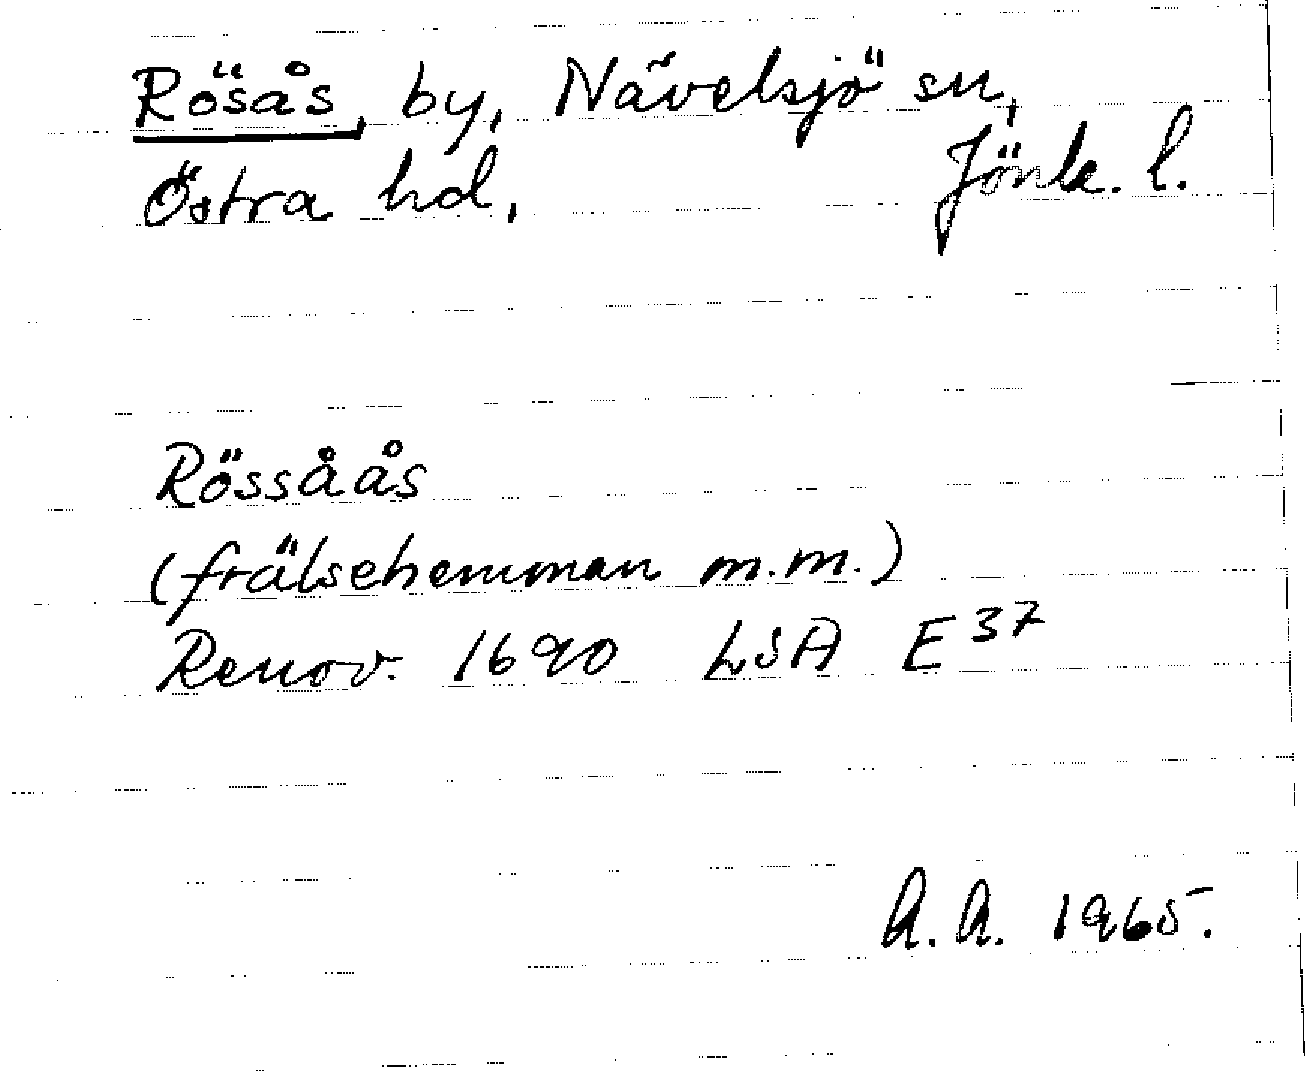 Rösås, by, Nävelsjö sn,
Östra hd, Jönk. l.
Rössåås
(frälsehemman m.m.)
Renov. 1690 LSA E 37
A.A. 1965.